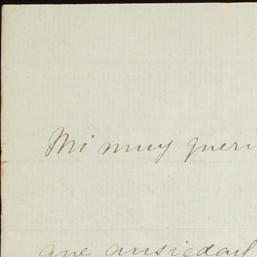 Mi muy queri
que ansiedad